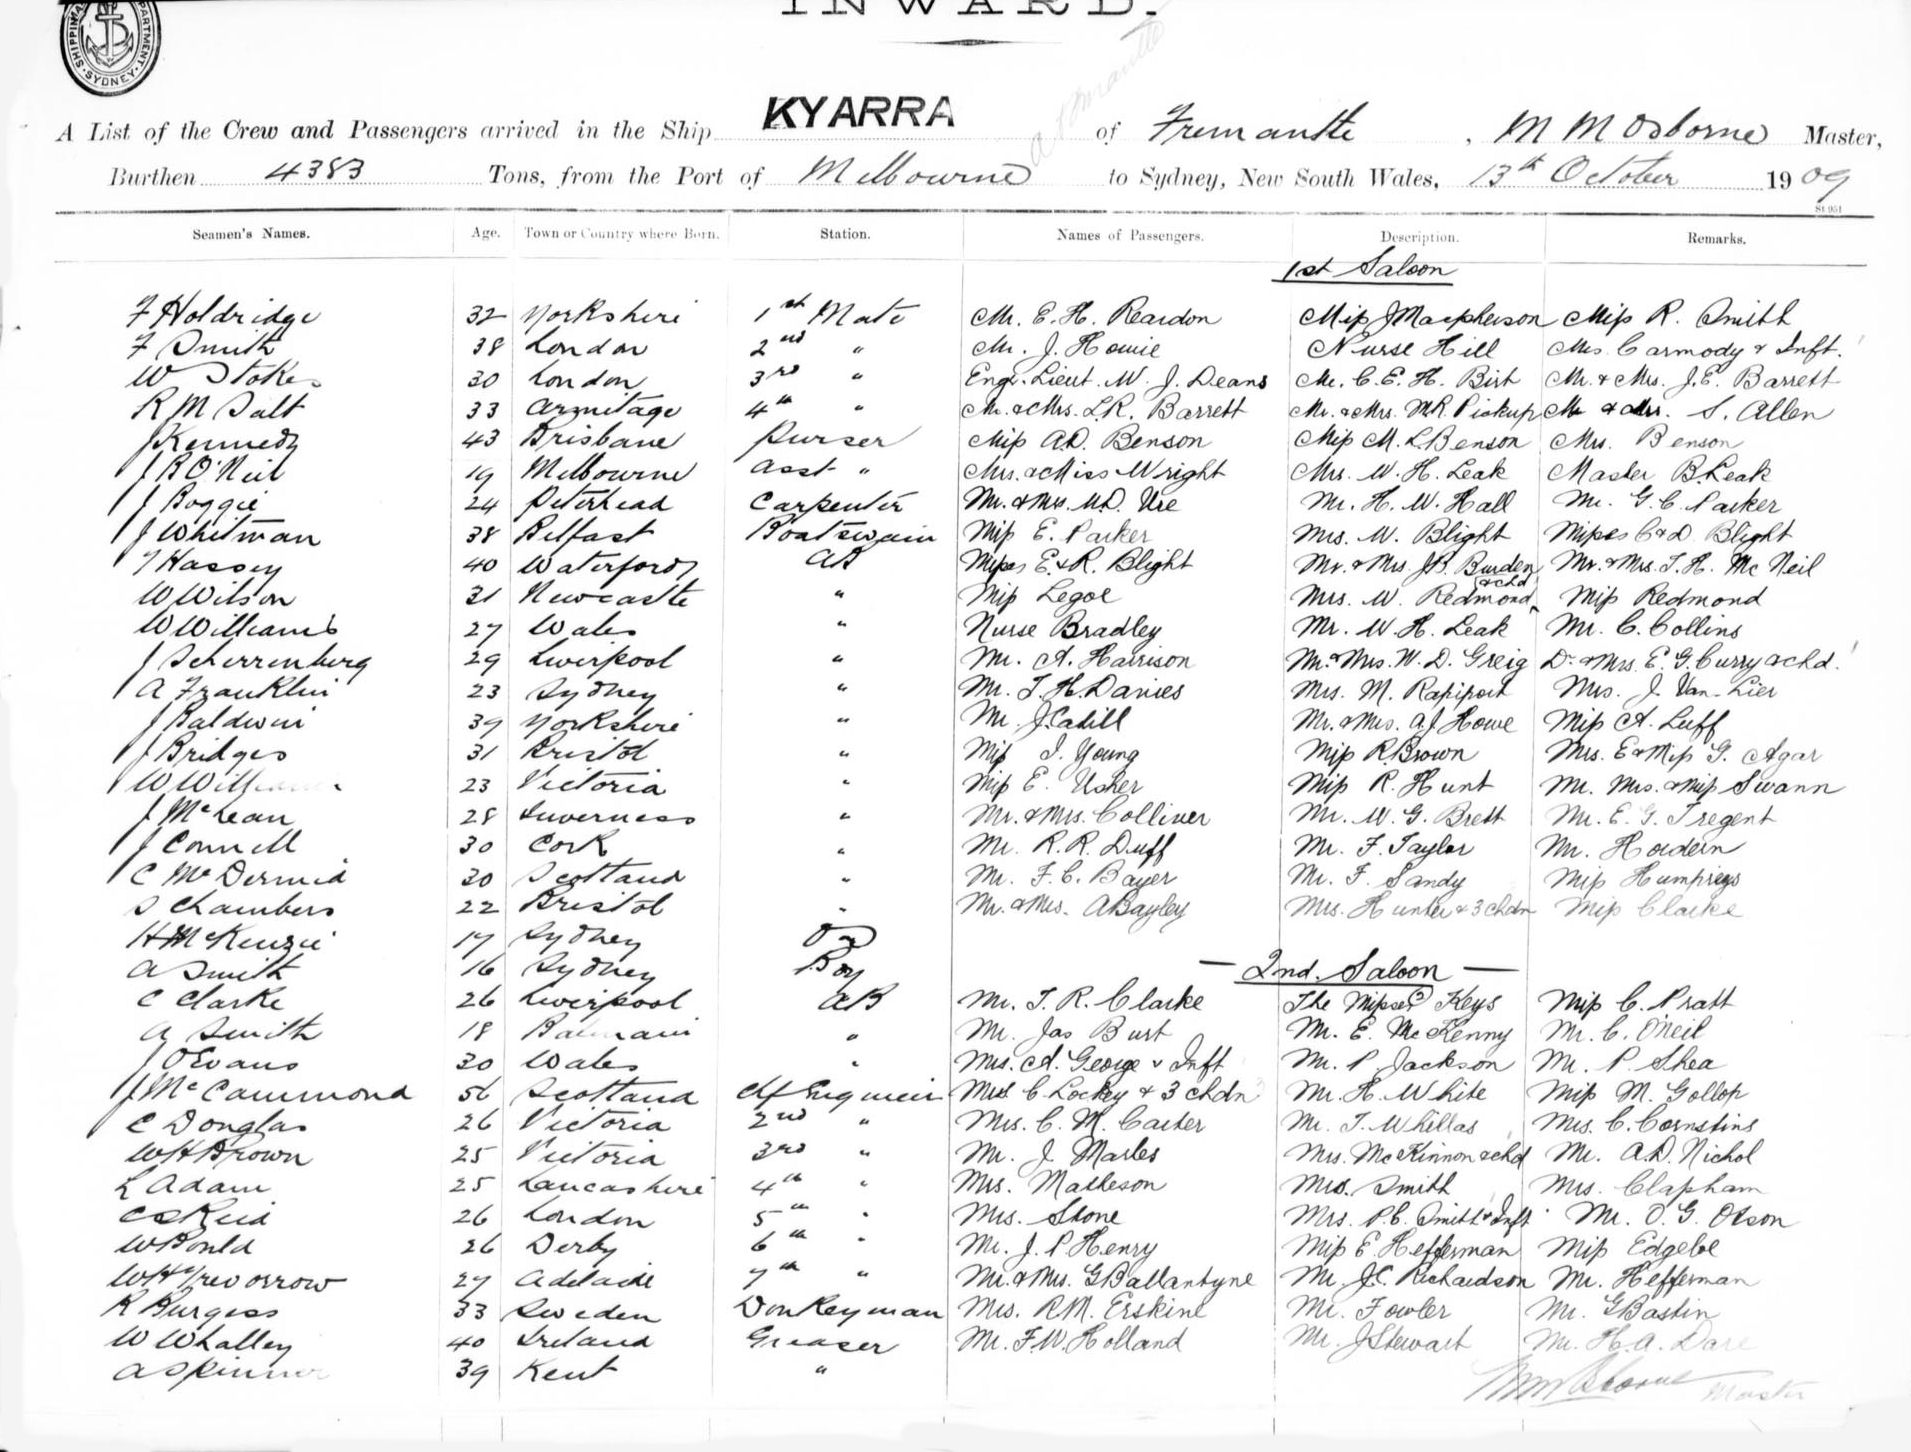 INWARD.
SHIPPING DEPARTMENT SYDNEY
A List of the Crew and Passengers arrived in the Ship KYARRA of Fremantle, M M Osborne Master,
Burthen 4383 Tons, from the Port of Melbourne to Sydney, New South Wales, 13th October 1909
St 951
Seamen's Names. Age. Town or Country where Born. Station. Names of Passengers. Description. Remarks.
1st Saloon
F Holdridge 32 Yorkshire 1st Mate Mr. E. H. Reardon Miss J Macpherson Miss R. Smith
F Smith 38 London 2nd " Mr. J. Howie Nurse Hill Mrs Carmody & Inft.
W Stokes 30 London 3rd " Engr. Lieut. W. J. Deans Mr. C. E. H. Birt Mr. & Mrs. J. E. Barrett
R M Salt 33 Armitage 4th " Mr. & Mrs. L. R. Barrett Mr. & Mrs. M R. Pickup Mr & Mrs. S. Allen
J Kennedy 43 Brisbane Purser Miss A. D. Benson Miss M. L Benson Mrs. Benson
J R O'Neil 19 Melbourne Asst " Mrs. & Miss Wright Mrs. W. H. Leak Master B. Leak
J Boggie 24 Peterhead Carpenter Mr. & Mrs. M. D. Ure Mr. H. W. Hall Mr. G. C. Parker
J Whitman 38 Belfast Boatswain Miss E. Parker Mrs. W. Blight Misses C & D. Blight
T Hassey 40 Waterford AB Misses E. & R. Blight Mr. & Mrs. J. B. Burden Mr. & Mrs. T. H. Mc Neil
W Wilson 31 Newcastle " Miss Legoe Mrs. W. Redmond & chd Miss Redmond
W Williams 27 Wales " Nurse Bradley Mr. W. H. Leak Mr. C. Collins
J Scherrenberg 29 Liverpool " Mr. A. Harrison Mr. & Mrs. W. D. Greig Dr. & Mrs. E. G. Curry & chd.
A Franklin 23 Sydney " Mr. T. H. Davies Mrs. M. Rapiport Mrs. J. Van-Lier
J Baldwin 39 Yorkshire " Mr. J. Cahill Mr. & Mrs. A. J. Howe Miss A. Luff
J Bridges 31 Bristol " Miss I. Young Miss R. Brown Mrs. E & Miss G. Agar
W Williams 23 Victoria " Miss E. Usher Miss R. Hunt Mr. Mrs. & Miss Swann
J McLean 28 Inverness " Mr. & Mrs. Colliver Mr. W. G. Brett Mr. E. G. Tregent
J Connell 30 Cork " Mr. R. R. Duff Mr. F. Taylor Mr. Hordern
C McDermid 30 Scotland " Mr. F. C. Bayer Mr. F. Sandy Miss Humphreys
S Chambers 22 Bristol " Mr. & Mrs. A Bayley Mrs. Hunter & 3 chdn Miss Clarke
H McKenzie 17 Sydney OS
A Smith 16 Sydney Boy
— 2nd. Saloon —
C Clarke 26 Liverpool AB Mr. T. R. Clarke The Misses Keys Miss C. Pratt
A Smith 18 Balmain " Mr. Jas Burt Mr. E. McKenny Mr. C. O'Neil
J O Evans 30 Wales " Mrs. A. George & Inft Mr. P. Jackson Mr. P. Shea
J McCammond 56 Scotland Chf Engineer Mrs C. Lockey & 3 chdn Mr. H. White Miss M. Gollop
C Douglas 26 Victoria 2nd " Mrs. C. M. Carter Mr. T. Whillas Mrs. C. Cornstins
W H Brown 25 Victoria 3rd " Mr. J. Marles Mrs. McKinnon & chd Mr. A. D. Nichol
L Adam 25 Lancashire 4th " Mrs. Matheson Mrs. Smith Mrs. Clapham
C S Reid 26 London 5th " Mrs. Stone Mrs. P. C. Smith & Inft Mr. O. G. Olson
W Bould 26 Derby 6th " Mr. J. P Henry Miss E. Hefferman Miss Edgebe
W H Trevorrow 27 Adelaide 7th " Mr. & Mrs. G Ballantyne Mr J. C. Richardson Mr. Hefferman
R Burgess 33 Sweden Donkeyman Mrs. R. M. Erskine Mr. Fowler Mr. G Bastin
W Whalley 40 Ireland Greaser Mr. F. W. Holland Mr. J Stewart Mr. H. A. Dare
A Skinner 39 Kent "
M M Osborne Master